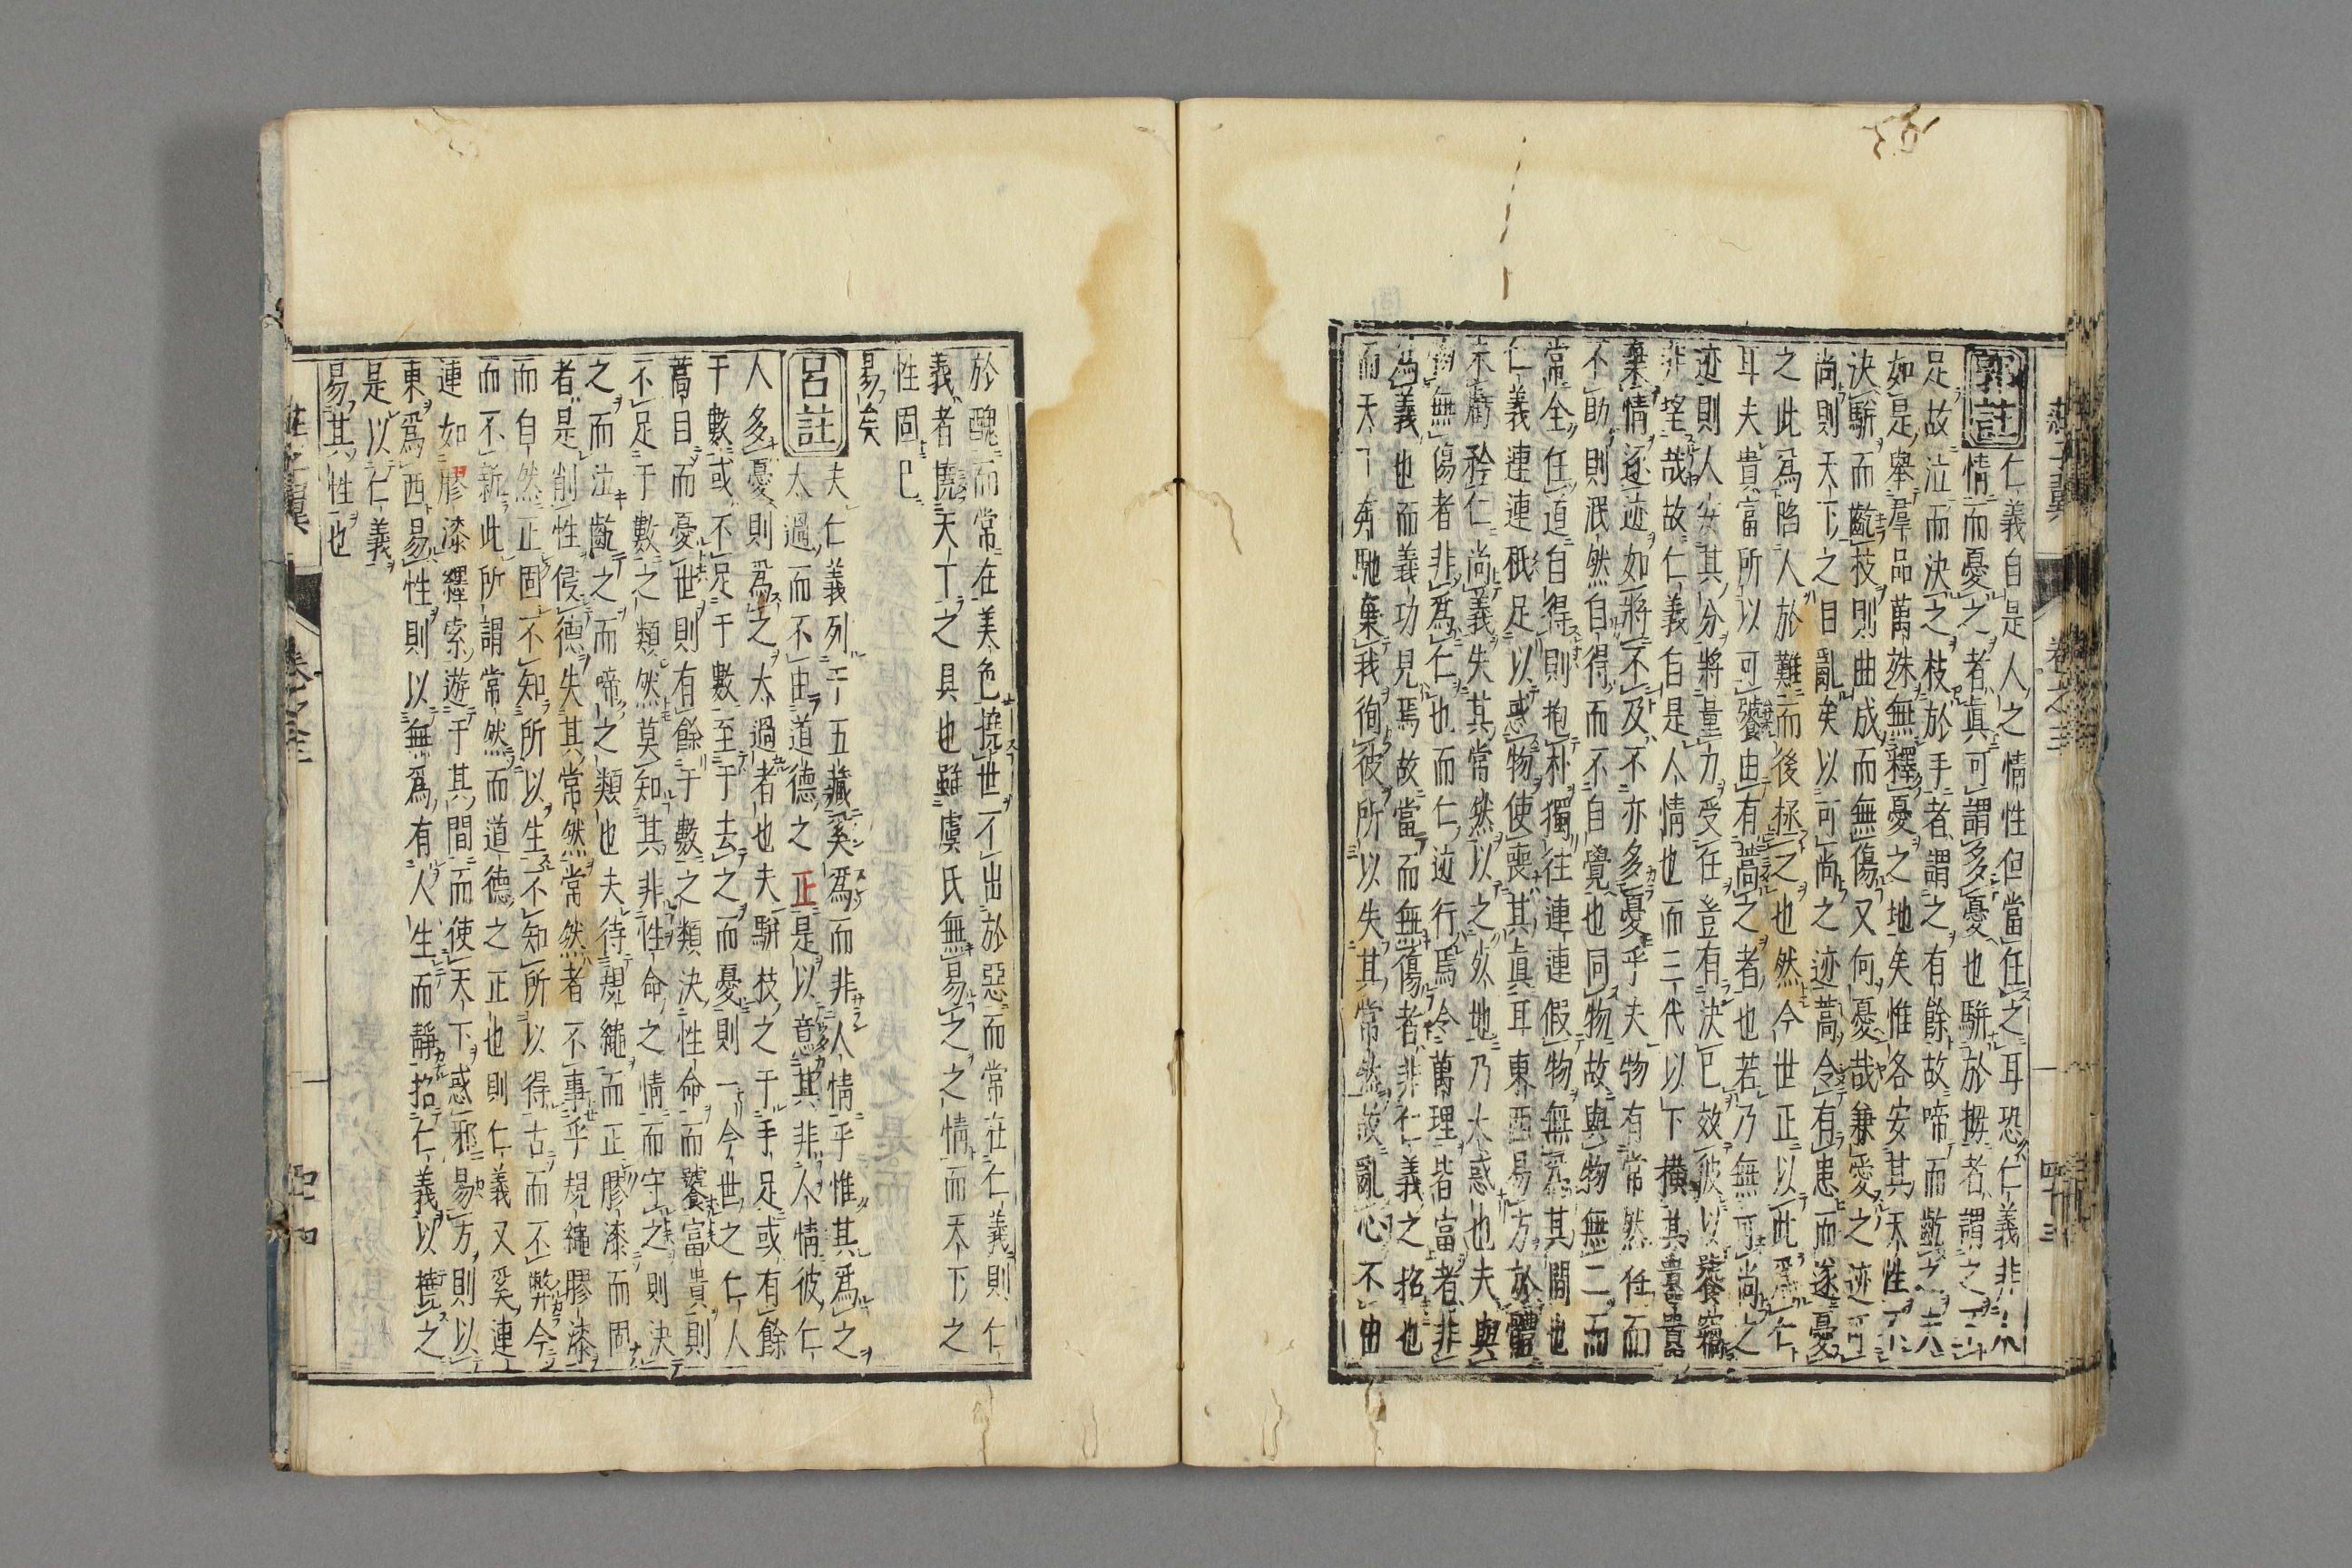 莊子翼　卷之三　四十三
郭註　仁義自是人之情性但當任之耳恐仁義非人
情而憂之者眞可謂多憂也駢於拇者謂之不
足故泣而決之枝於手者謂之有餘故啼而齕之夫
如是舉羣品萬殊無釋憂之地矣惟各安其天性不
決駢而齕枝則曲成而無傷又何憂哉兼愛之迹可
尚則天下之目亂矣以可尚之迹蒿令有患而遂憂
之此為陷人於難而後拯之也然今世正以此為仁
耳夫貴富所以可饕由有蒿之者也若乃無可尚之
迹則人安其分將量力受任豈有決已效彼以饕竊
非望哉故仁義自是人情也而三代以下橫其囂囂
棄情逐迹如將不及不亦多憂乎夫物有常然任而
不助則泯然自得而不自覺也同物故與物無二而
常全任道自得則抱朴獨往連連假物無為其間也
仁義連連秖足以惑物使喪其眞耳東西易方於體
未虧矜仁尚義失其常然以之死地乃大惑也夫與
物無傷者非為仁也而仁迹行焉令萬理皆當者非
為義也而義功見焉故當而無傷者非仁義之招也
而天下奔馳棄我徇彼所以失其常然故亂心不由
於醜而常在美色撓世不出於惡而常在仁義則仁
義者撓天下之具也雖虞氏無易之之情而天下之
性固已
易矣
呂註　夫仁義列于五藏奚爲而非人情乎惟其爲之
太過而不由道德之正是以意其非人情彼仁
人多憂則為之太過者也夫駢枝之于手足或有餘
于數或不足于數至于去之而憂則一今世之仁人
蒿目而憂世則有餘于數之類決性命而饕富貴則
不足于數之類然莫知其非性命之情而守之則決
之而泣齕之而啼之類也夫待規繩而正膠漆而固
者是削性侵德失其常然常然者不事乎規繩膠漆
而自然正固不知所以生不知所以得古而不弊今
而不新此所謂常然而道德之正也則仁義又奚連
連如膠漆纆索遊于其間而使天下惑邪易方則以
東爲西易性則以無爲有人生而靜招仁義以撓之
是以仁義
易其性也
莊子翼　卷之三　四十四